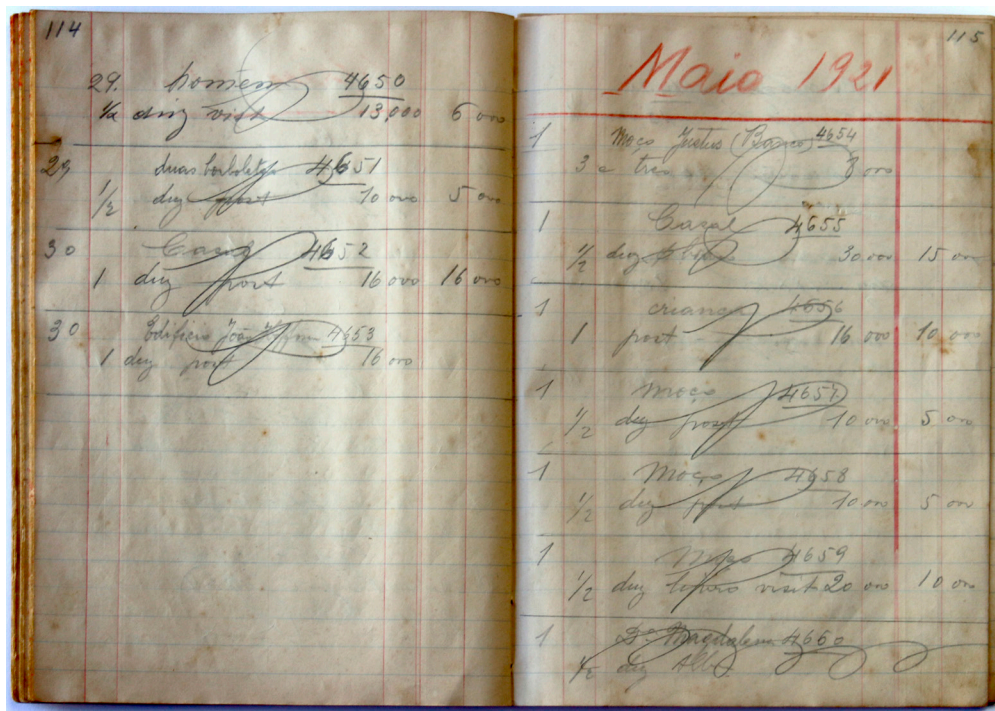 114
29. homem 4650
1/2 duz visit 13,000 6 000
29 duas borboletas 4651
1/2 duz post 10 000 5 000
30 Cazal 4652
1 duz post 16 000 16 000
30 Edificio João 4653
1 duz post 16 000
115
Maio 1921
1 Moço Justus (Banco) 4654
3 c tres 8 000
1 Cazal 4655
1/2 duz 30 000 15 000
1 criança 4656
1 post 16 000 10 000
1 moço 4657
1/2 duz post 10 000 5 000
1 Moço 4658
1/2 duz post 10 000 5 000
1 Moço 4659
1/2 duz visit 20 000 10 000
1 Da Magdalena 4660
1/2 duz Alb.